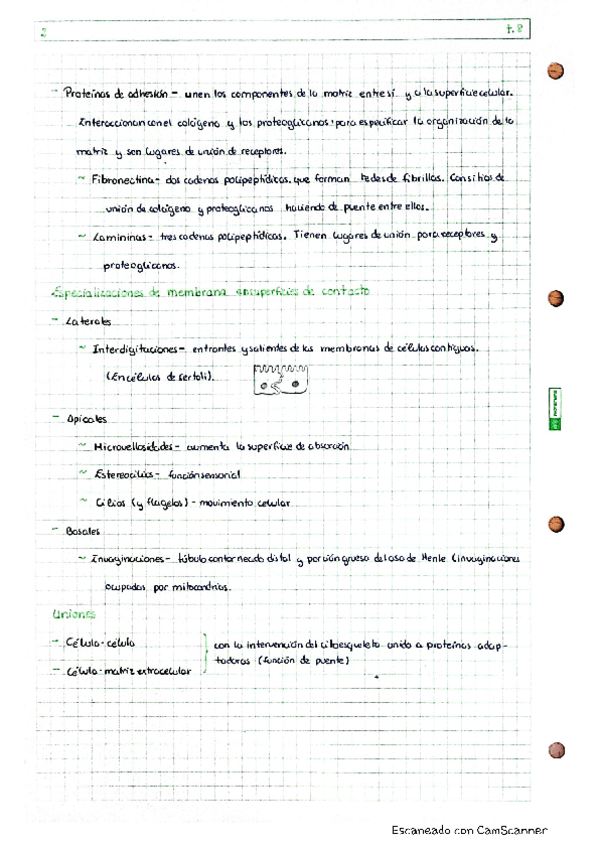 2
t.8
- Proteínas de adhesión - unen los componentes de la matriz entre sí y a la superficie celular.
Interaccionan con el colágeno y los proteoglicanos para especificar la organización de la
matriz y son lugares de unión de receptores.
~ Fibronectina - dos cadenas polipeptídicas que forman redes de fibrillas. Con sitios de
unión de colágeno y proteoglicanos haciendo de puente entre ellos.
~ Lamininas - tres cadenas polipeptídicas. Tienen lugares de unión para receptores y
proteoglicanos.
Especializaciones de membrana en superficies de contacto
- Laterales
~ Interdigitaciones - entrantes y salientes de las membranas de células contiguas.
(En células de sertoli).
- Apicales
~ Microvellosidades - aumenta la superficie de absorción
~ Estereocilios - función sensorial
~ Cilios (y flagelos) - movimiento celular
- Basales
~ Invaginaciones - túbulo contorneado distal y porción gruesa del asa de Henle (invaginaciones
ocupadas por mitocondrias.
Uniones
- Célula-célula
- Célula-matriz extracelular
con la intervención del citoesqueleto unido a proteínas adap-
tadoras (función de puente)
Escaneado con CamScanner